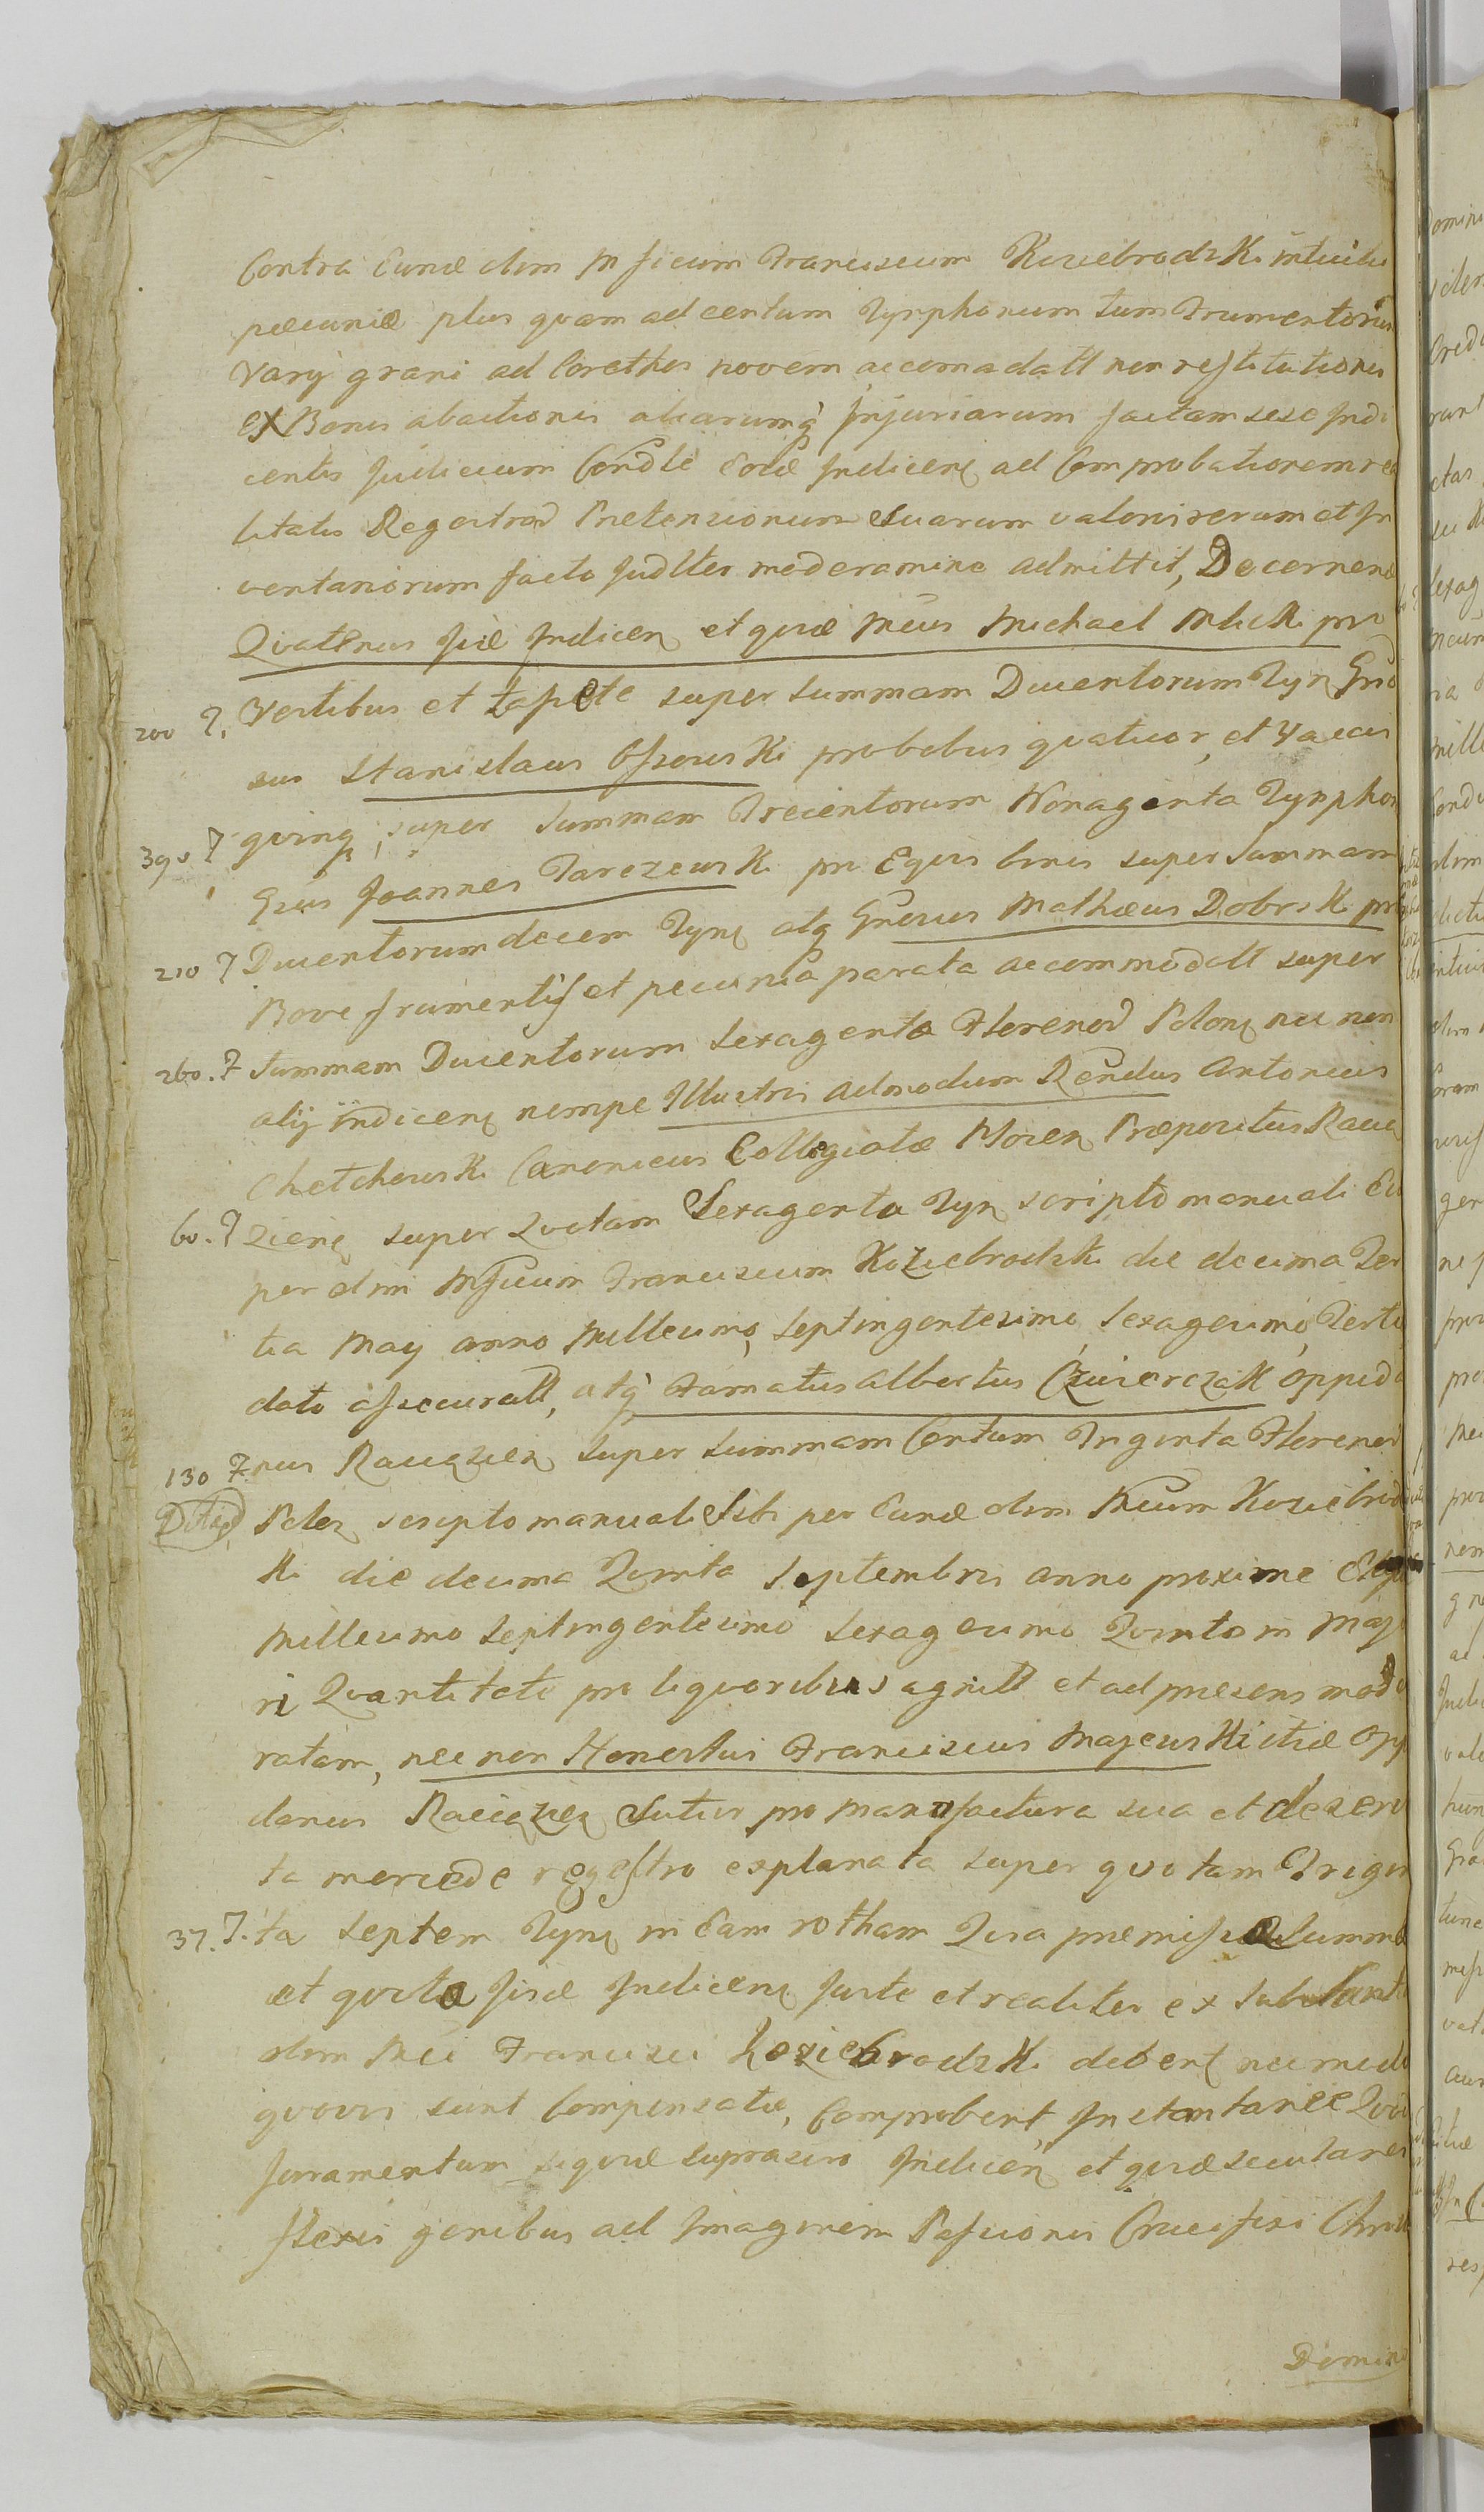 Contra Eund olim Mficum Franciscum Koziebrodzki intuitu
pecuniæ plus quam ad centum Tynphonum tum Frumentorum
Varÿ grani ad Corethos novem accomadatt non restitutionis
ex Bonis abactionis aliarumq Injuriarum factam sese Indi
centis Judicium Condle Eosd Indicen ad Comprobationem rea
litatis Regestrod Pretensionum Suarum valoris rerum et In
ventariorum facto Judlter moderamine admittit, Decernend
Qvatenus Iid Indicen et qvid Mcus Michael Mlicki pro
200 T. Vestibus et tapete super summam Ducentorum Tyn Gno
sus Stanislaus Ossowski pro bobus qvatuor, et Vaccis
390 T qvinq; super summam Trecentorum Nonaginta Tynphon
Gsus Joannes Tarczewski pro Eqvis binis super summam
210 T Ducentorum decem Tyn atq Gnosus Mathæus Dobrski pro
Bove frumentis et pecunia parata accommodatt super
260. T summam Ducentorum Sexaginta Florenod Polon nec non
alij Indicen nempe Illustris admodum Rendus Antonius
Chełchowski Canonicus Collegiatæ Præpositus Raciąz
60. T zien super Qvotam Sexaginta Tyn scripto manuali Eid
per olim Mficum Franciscum Koziebrodzki die decima Ter
tia May anno Millesimo, Septingentesimo Sexagesimo, Tertio
dato assecuratt, atq Famatus Albertus Czwierczak oppida
130 T. nus Raciązien super summam Centum Triginta Florenod
Polon scripto manuali Sibi per Eund olim Mcum Koziebrodz
ki die decima Qvinta Septembris anno proxime
Millesimo Septingentesimo Sexagesimo Qvinto in Majo
ri Qvantitate pro liqvoribus agnitt et ad præsens mode
ratam, nec non Honestus Franciscus Majewski itid Oppi
danus Raciązien Sutor pro manufactura sua et deservi
ta mercede regestro explanata super qvotam Trigin
37. T. ta septem Tyn in Eam rotham Qvia præmissæ Summæ
et qvota Iisd Indicen juste et realiter ex Substantia
olim Mci Francisci Koziebrodzki debent nec modo
qvovis sunt Compensatæ, Comprobent, Instantanee Qvod
Juramentum siqvid suprascri Indicen et qvid seculares
flexis genibus ad Imaginem Passionis Crucifixi Christi
Domini